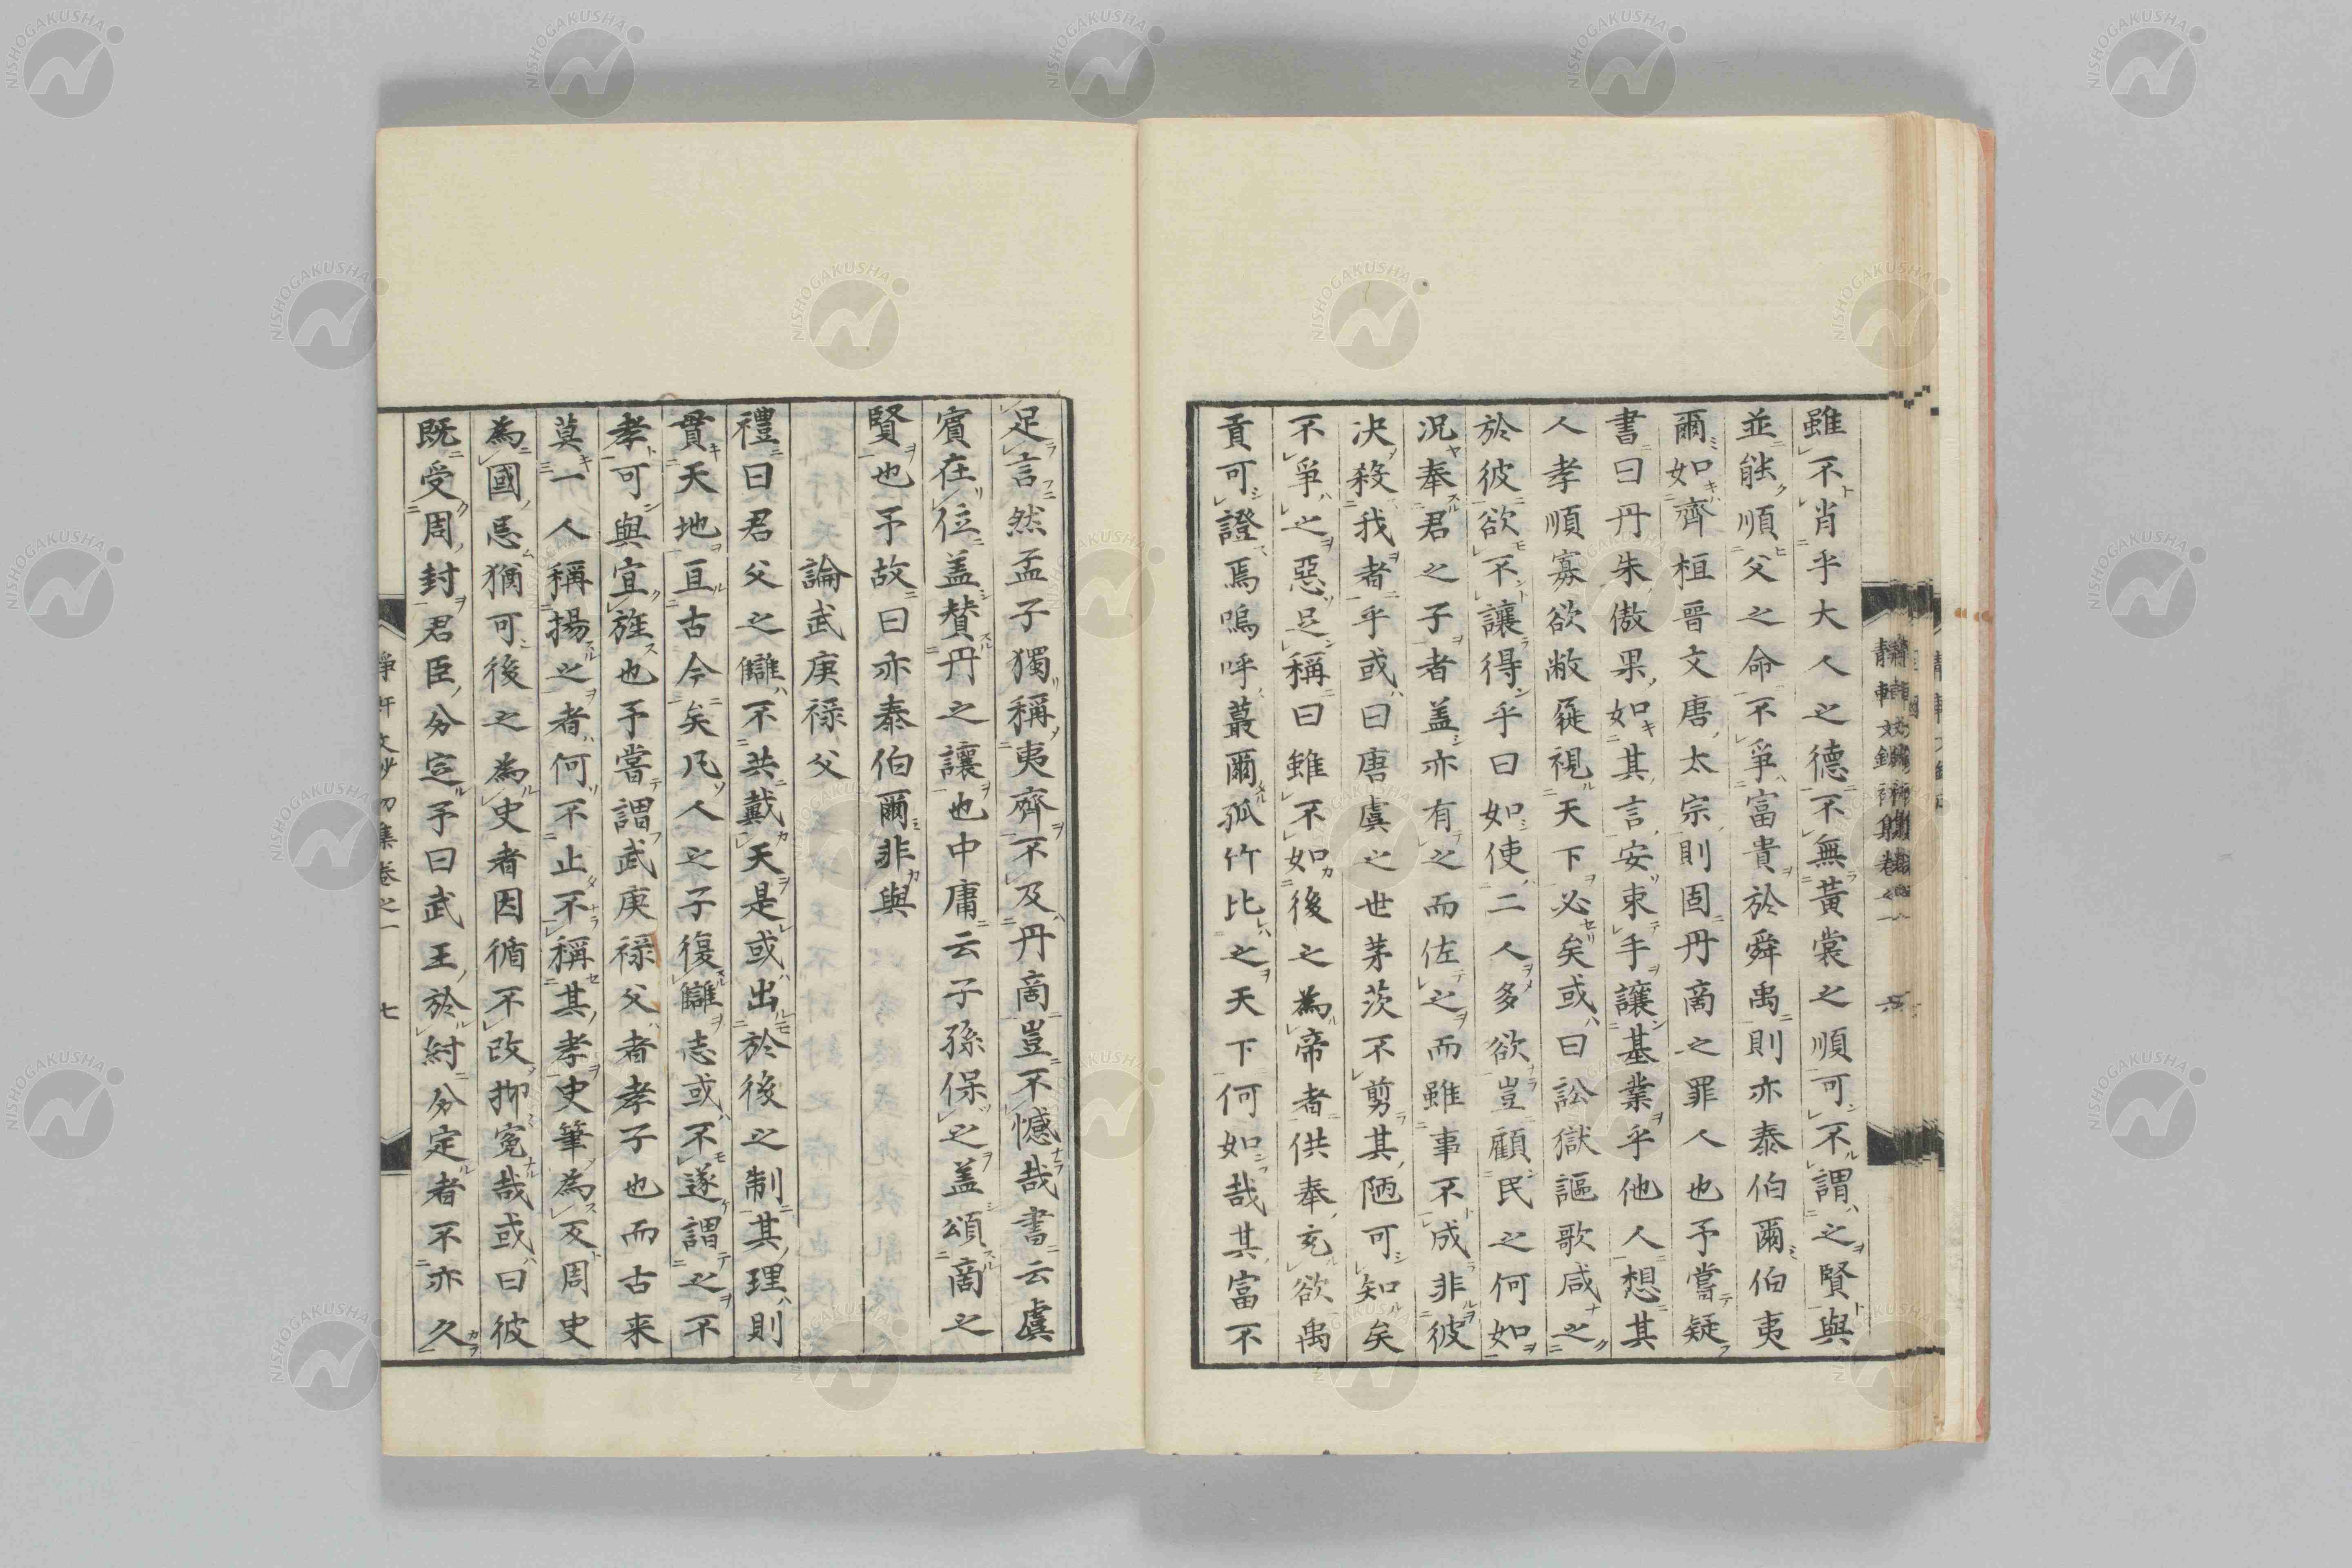 雖不肖乎大人之德不無黃裳之順可不謂之賢與
並能順父之命不爭富貴於舜禹則亦泰伯爾伯夷
爾如齊桓晉文唐太宗則固丹商之罪人也予嘗疑
書曰丹朱傲果如其言安束手讓基業乎他人想其
人孝順寡欲敝蓰視天下必矣或曰訟獄謳歌咸之
於彼欲不讓得乎曰如使二人多欲豈顧民之何如
況奉君之子者盖亦有之而佐之而雖事不成非彼
決殺我者乎或曰唐虞之世茅茨不剪其陋可知矣
不爭之惡足稱曰雖不如後之為帝者供奉充欲禹
貢可證焉嗚呼蕞爾孤竹比之天下何如哉其富不
足言然孟子獨稱夷齊不及丹商豈不憾哉書云虞
賓在位盖賛丹之讓也中庸云子孫保之盖頌商之
賢也予故曰亦泰伯爾非與
論武庚祿父
禮曰君父之讎不共戴天是或出於後之制其理則
貫天地亘古今矣凡人之子復讎志或不遂謂之不
孝可與宜旌也予嘗謂武庚祿父者孝子也而古来
莫一人稱揚之者何不止不稱其孝史筆為反周史
為國忌猶可後之為史者因循不改抑冤哉或曰彼
既受周封君臣分定予曰武王於紂分定者不亦久
靜軒文鈔初集卷之一 七
NISHOGAKUSHA